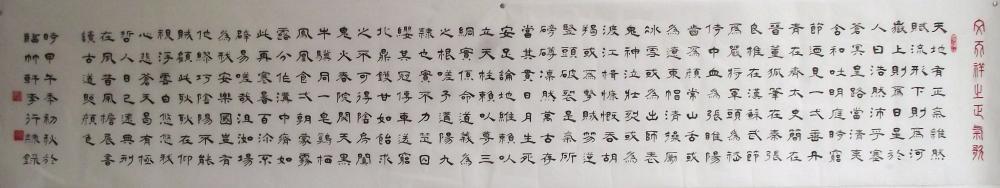 文天祥之正氣歌
天地有正氣雜然
賦流形下則為河
嶽上則為日星於
人曰浩然沛乎塞
蒼冥皇路當清夷
含和吐明庭時窮
節迺見一一垂丹
青在齊太史簡在
晉董狐筆在秦張
良椎在漢蘇武節
為嚴將軍頭為嵇
侍中血為張睢陽
齒為顏常山舌或
為遼東帽清操厲
冰雪或為出師表
鬼神泣壯烈或為
渡江楫慷慨吞胡
羯或為擊賊笏逆
豎頭破裂是氣所
磅礴凜烈萬古存
當其貫日月生死
安足論地維賴以
立天柱賴以尊三
綱實係命道義為
之根嗟予遘陽九
隸也實不力楚囚
纓其冠傳車送窮
北鼎鑊甘如飴求
之不可得陰房闃
鬼火春院閟天黑
牛驥同一皂雞棲
鳳凰食一朝蒙霧
露分作溝中瘠如
此再寒暑百沴自
辟易嗟哉沮洳場
為我安樂國豈有
他繆巧陰陽不能
賊顧此耿耿在仰
視浮雲白悠悠我
心悲蒼天曷有極
哲人日已遠典刑
在夙昔風簷展書
讀古道照顏色
時甲午年初秋於
臨竹軒李行錄